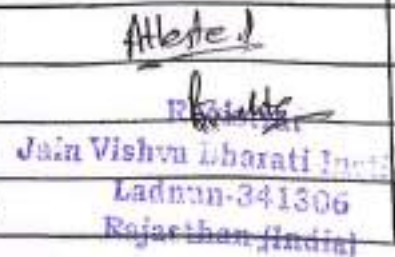 Attested
Registrar
Jain Vishva Bharati Insti
Ladnun-341306
Rajasthan (India)